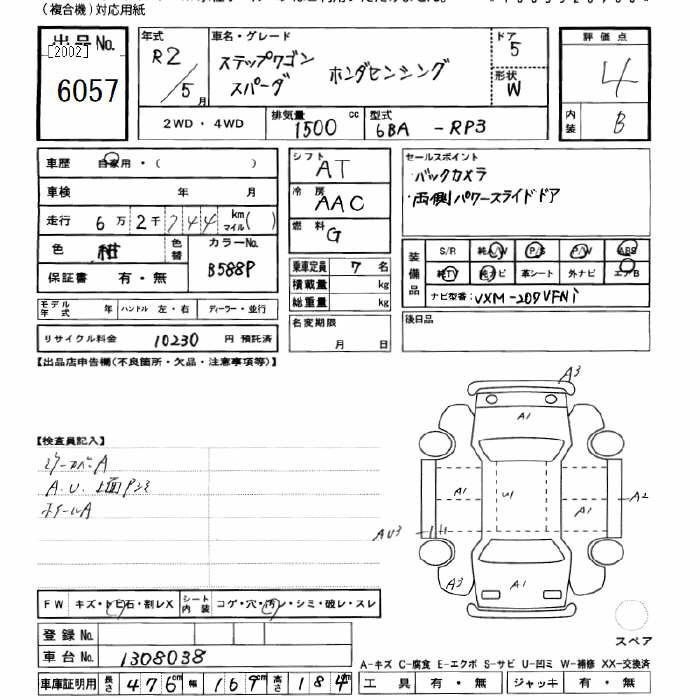 (複合機)対応用紙
出品No.
[2002]
6057
年式 R2/5月
車名・グレード ステップワゴン ホンダセンシング
スパーダ
ドア 5
形状 W
評価点 4
内装 B
2WD・4WD 排気量 1500 cc 型式 6BA -RP3
車歴 自家用・( )
車検 年 月
走行 6万2千244 km マイル( )
色 紺 色替 カラーNo. B588P
保証書 有・無
モデル年式 年 ハンドル 左・右 ディーラー・並行
リサイクル料金 10230 円 預託済
シフト AT
冷房 AAC
燃料 G
乗車定員 7 名
積載量 kg
総重量 kg
名変期限 月 日
セールスポイント
・バックカメラ
・両側パワースライドドア
装備品 S/R 純A/W P/S P/W ABS
純TV 純ナビ 革シート 外ナビ エアB
ナビ型番: VXM-207VFNi
後日品
【出品店申告欄(不良箇所・欠品・注意事項等)】
【検査員記入】
A.U.上面Pシミ
ホイールA
A3
A1
A1
U1
A1
A2
AU3
A3
A1
FW キズ・トビ石・割レX シート内装 コゲ・穴・汚レ・シミ・破レ・スレ
登録No.
車台No. 1308038
車庫証明用 長さ 476cm 幅 169cm 高さ 184cm
スペア
A-キズ C-腐食 E-エクボ S-サビ U-凹ミ W-補修 XX-交換済
工具 有・無 ジャッキ 有・無